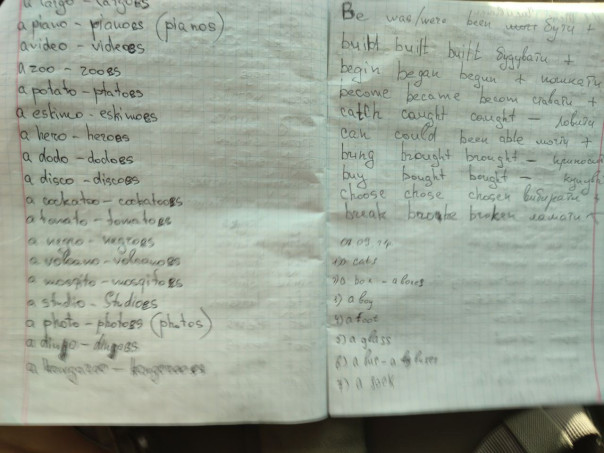 a largo - largoes
a piano - pianoes (pianos)
a video - videoes
a zoo - zooes
a potato - ptatoes
a eskimo - eskimoes
a hero - heroes
a dodo - dodoes
a disco - discoes
a cockatoo - cockatooes
a tomato - tomatoes
a negro - negroes
a volcano - volcanoes
a mosqito - mosqitoes
a studio - Studioes
a photo - photoes (photos)
a
a
Be was/were been бути +
built built built будувати +
begin began begun + починати
become became becom ставати +
catch caught caught - ловити
can could been able могти +
bring brought brought -
buy bought bought -
choose chose chosen вибирати +
break broke broken ламати
1) a cat
2) a box - a boxes
3) a
4) a foot
5) a glass
6) a
7) a